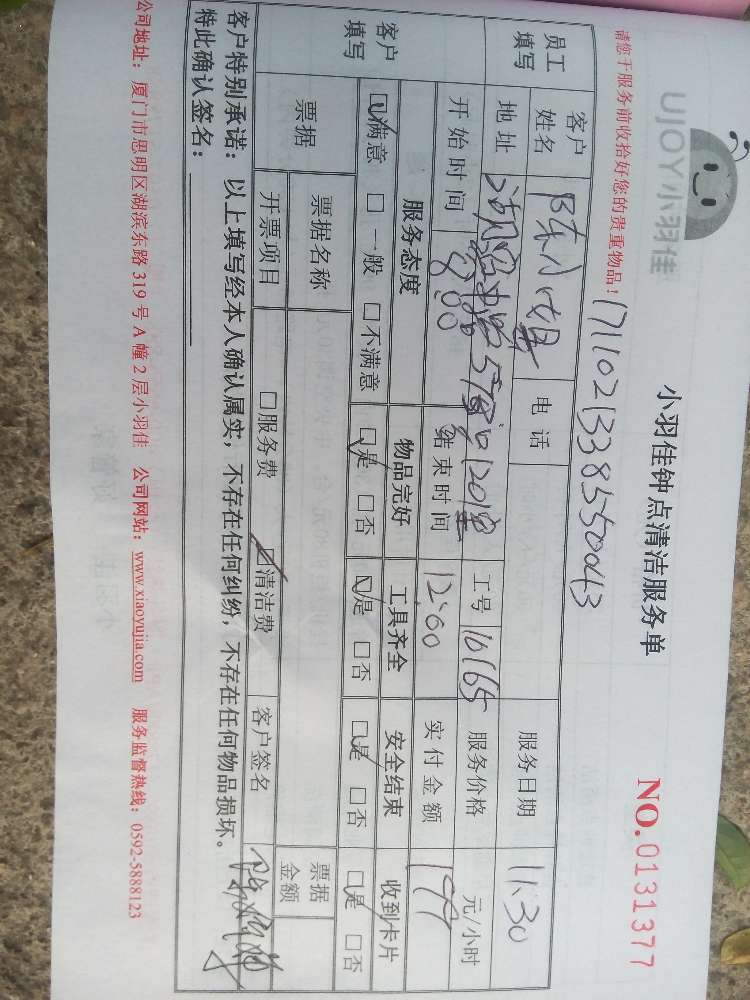 UJOY小羽佳
小羽佳钟点清洁服务单
NO.0131377
请您于服务前收拾好您的贵重物品！
1711021338550043
员工填写
客户姓名 陈小姐 电话 服务日期 11.30
地址 工号 10165 服务价格 元/小时
开始时间 8:00 结束时间 12:00 实付金额 199
客户填写
服务态度 物品完好 工具齐全 安全结束 收到卡片
☑满意 □一般 □不满意 ☑是 □否 ☑是 □否 ☑是 □否 ☑是 □否
票据 票据名称 票据金额
开票项目 □服务费 ☑清洁费 客户签名
客户特别承诺：以上填写经本人确认属实，不存在任何纠纷，不存在任何物品损坏。
特此确认签名：
公司地址：厦门市思明区湖滨东路 319 号 A 幢 2 层小羽佳 公司网站：www.xiaoyujia.com 服务监督热线：0592-5888123